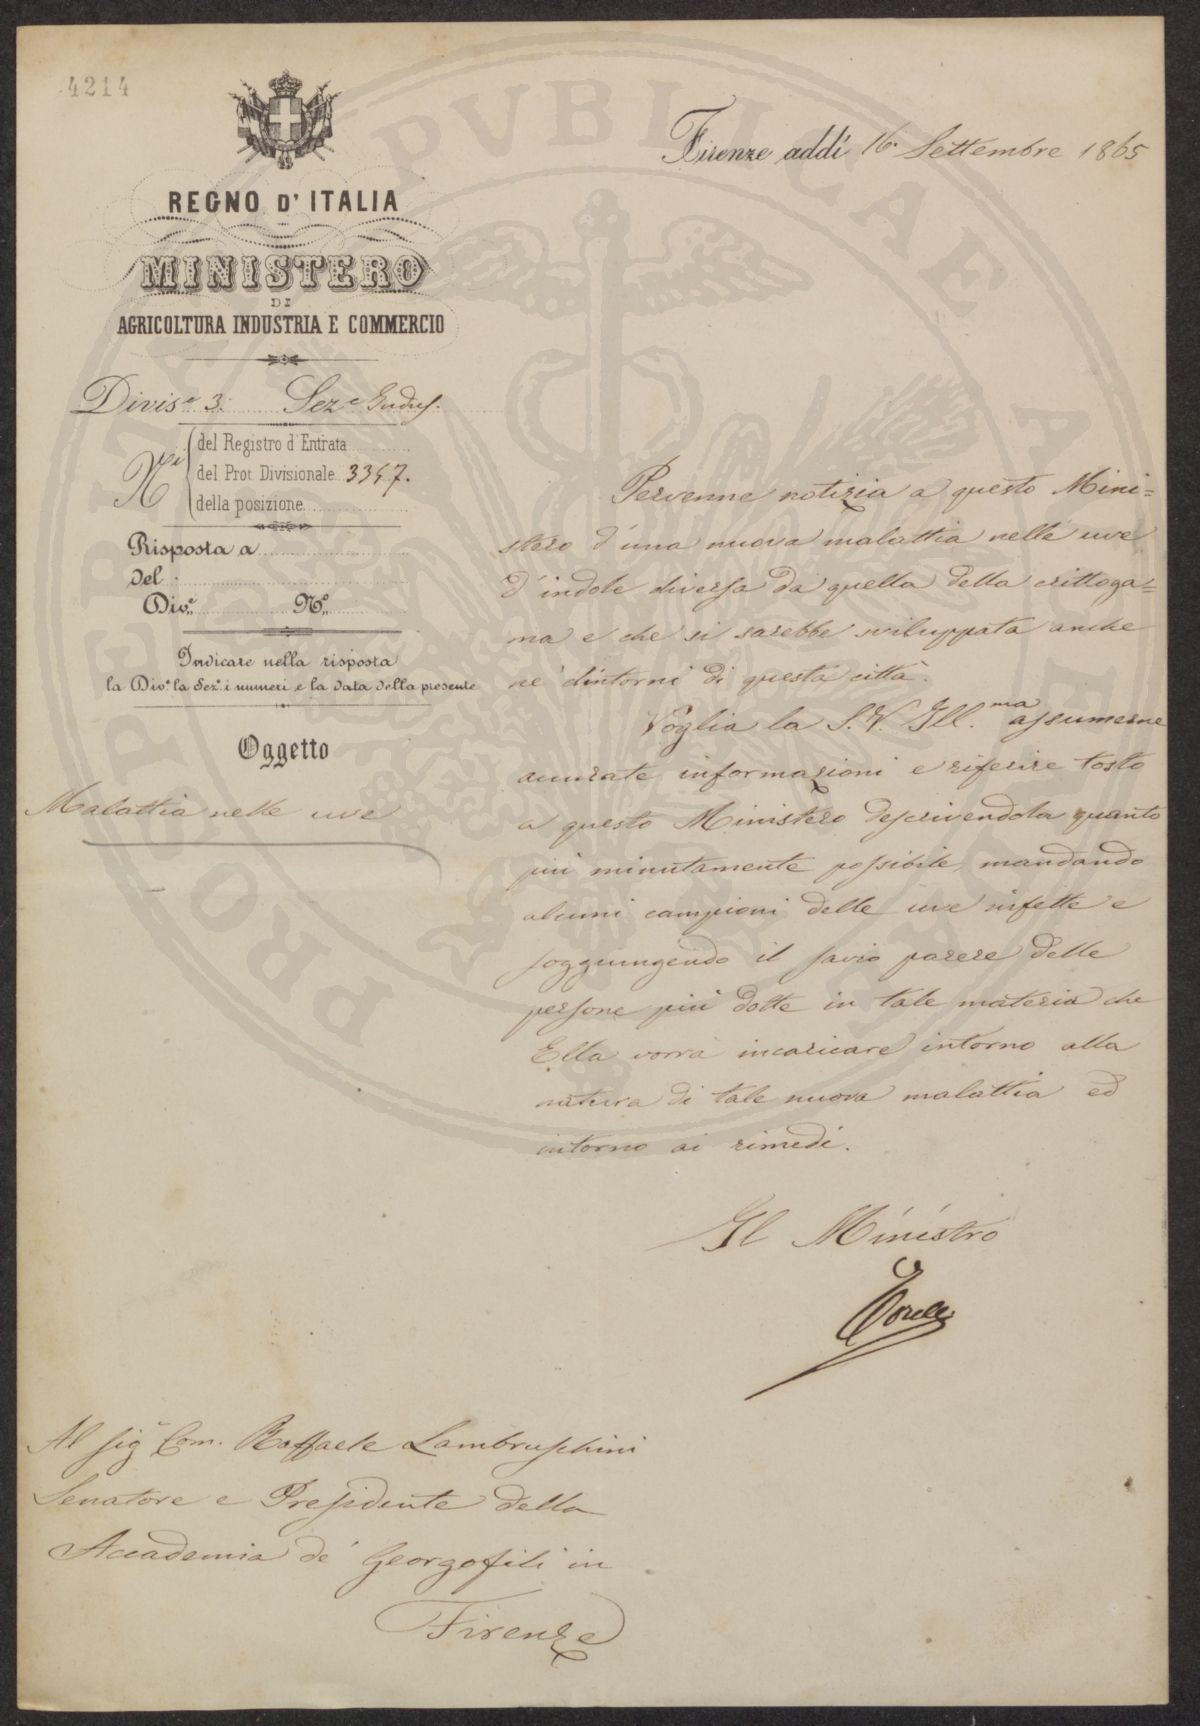 4214
REGNO D' ITALIA
MINISTERO
DI
AGRICOLTURA INDUSTRIA E COMMERCIO
Divis.e 3. Sez.e Indus.
N.i
del Registro d'Entrata
del Prot. Divisionale 3347.
della posizione
Risposta a
del
Div.e N.o
Indicare nella risposta
la Div.e la Sez.e i numeri e la data della presente
Oggetto
Malattia nelle uve
Firenze addì 16. Settembre 1865
Pervenne notizia a questo Mini=
stero d'una nuova malattia nelle uve
d'indole diversa da quella della crittoga=
ma e che si sarebbe sviluppata anche
ne' dintorni di questa città.
Voglia la S. V. Ill.ma assumerne
accurate informazioni e riferire tosto
a questo Ministero descrivendola quanto
più minutamente possibile, mandando
alcuni campioni delle uve infette e
soggiungendo il savio parere delle
persone più dotte in tale materia che
Ella vorrà incaricare intorno alla
natura di tale nuova malattia ed
intorno ai rimedi.
Il Ministro
Torelli
Al Sig.r Com. Raffaele Lambruschini
Senatore e Presidente della
Accademia de' Georgofili in
Firenze